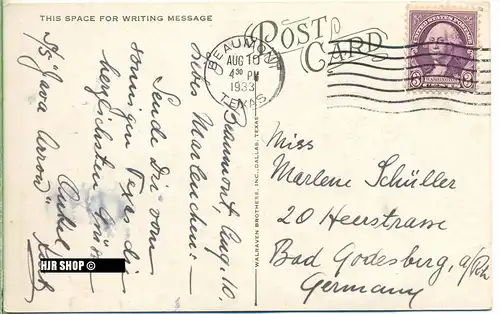 THIS SPACE FOR WRITING MESSAGE
POST CARD
BEAUMONT
AUG 10
4 30 PM
1933
TEXAS
UNITED STATES POSTAGE
WASHINGTON
3 3
Beaumont, Aug. 10.
Liebes Marlenchen:—
Sende Dir vom
sonnigen Texas die
herzlichsten Grüße
Onkel
S/S "Java Arrow"
WALRAVEN BROTHERS, INC., DALLAS, TEXAS
Miss
Marlene Schüller
20 Heerstrasse
Bad Godesberg, a/Rh
Germany
HJR SHOP ©